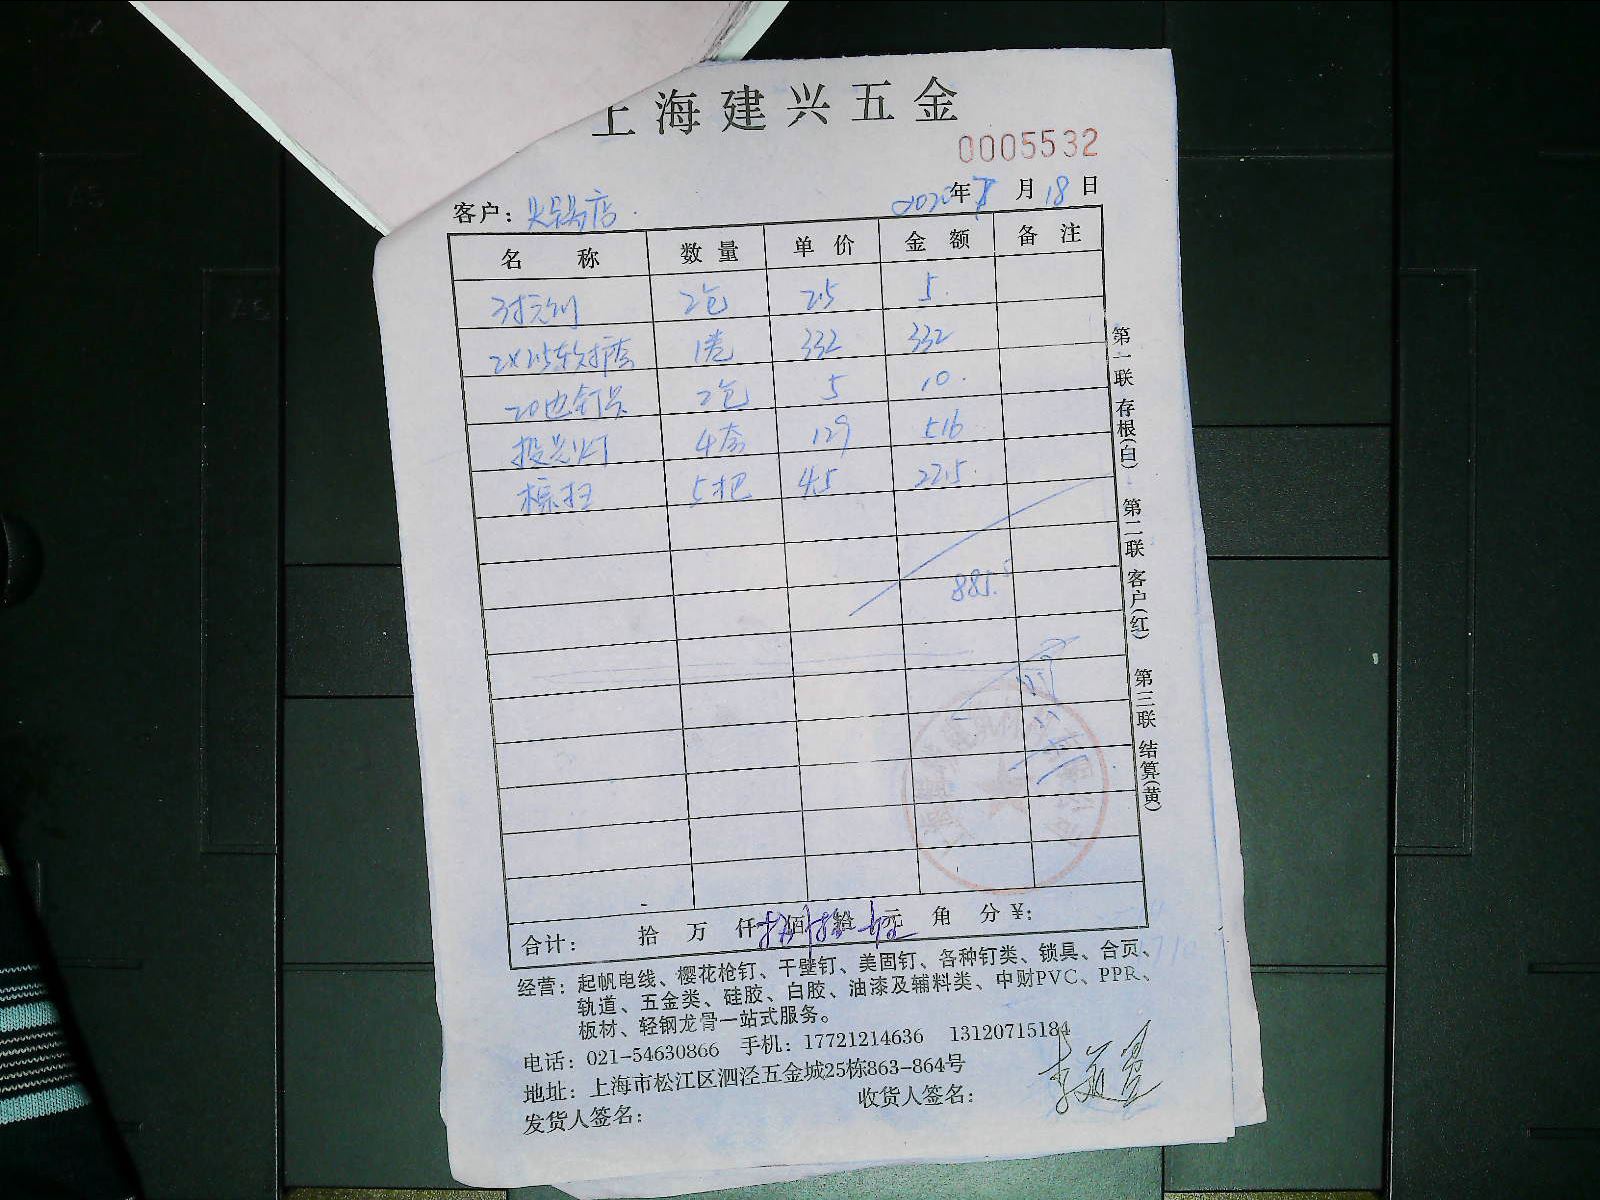 上海建兴五金
0005532
客户：火锅店 2020年 月18日
名称 数量 单价 金额 备注
2包 2.5 5.
2×2.5软护套 1卷 332 332
2包 5 10.
投光灯 4套 129 516
5把 4.5 22.5
885.5
合计： 拾 万 仟 佰 拾 元 角 分 ¥:
经营：起帆电线、樱花枪钉、干壁钉、美固钉、各种钉类、锁具、合页、
轨道、五金类、硅胶、白胶、油漆及辅料类、中财PVC、PPR、
板材、轻钢龙骨一站式服务。
电话：021-54630866 手机：17721214636 13120715184
地址：上海市松江区泗泾五金城25栋863-864号
发货人签名： 收货人签名：
第一联 存根(白) 第二联 客户(红) 第三联 结算(黄)